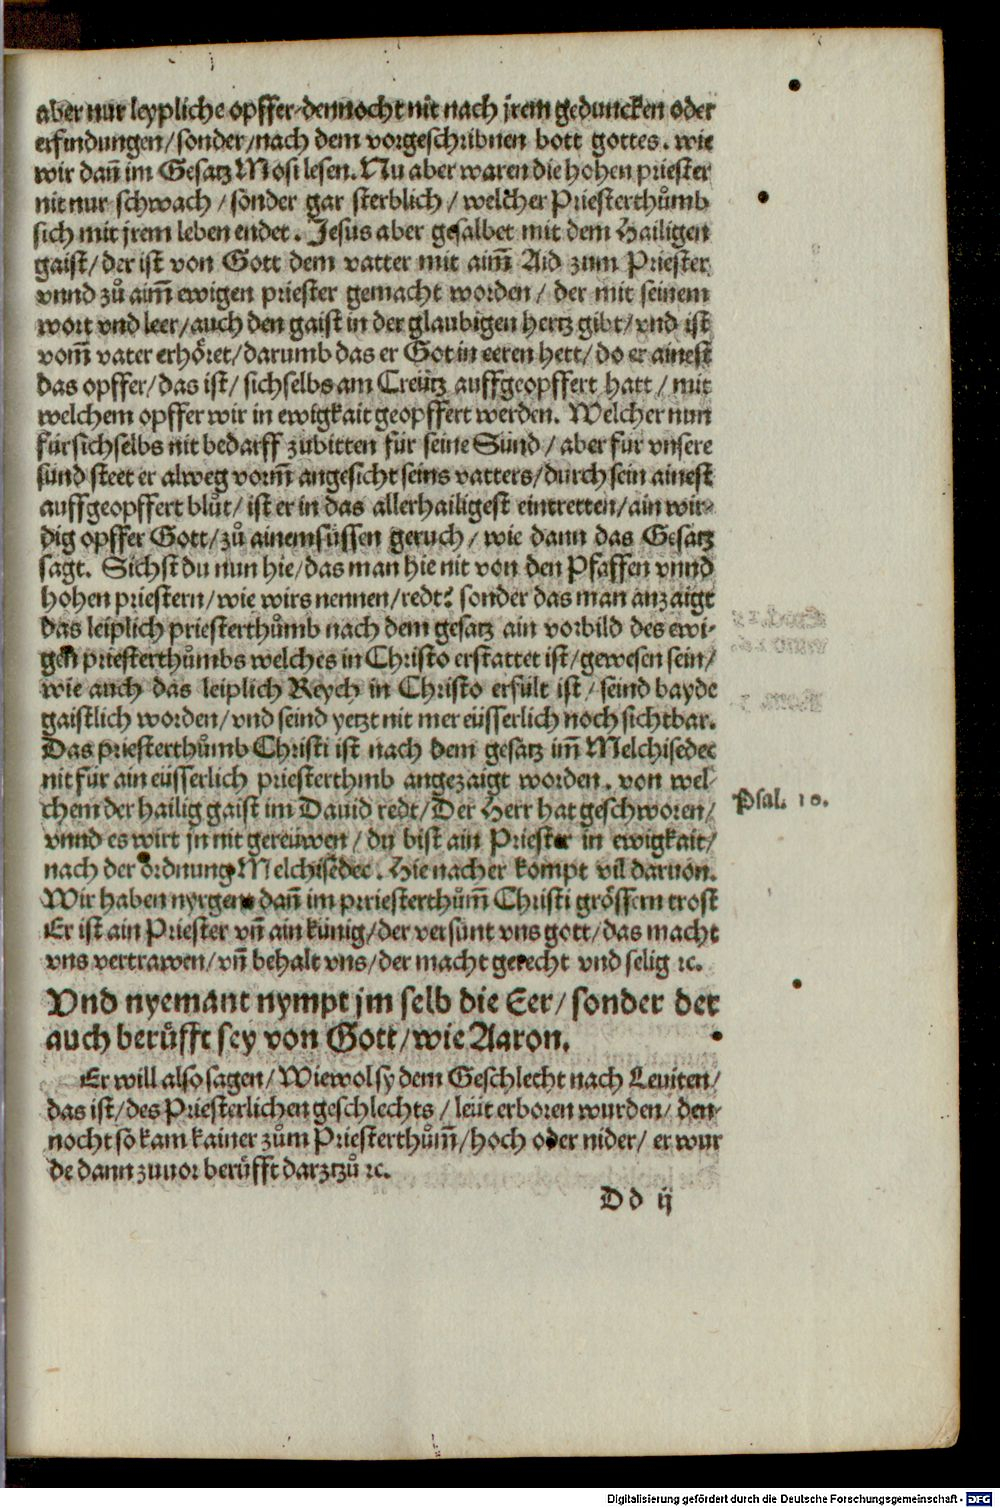 aber nur leypliche opffer-dennocht nit nach jrem geduncken oder
erfindungen/sonder/nach dem vorgeschribnen bott gottes. wie
wir dañ im Gesatz Mosi lesen. Nu aber waren die hohen priester
nit nur schwach/sonder gar sterblich/welcher Priesterthůmb
sich mit jrem leben endet. Jesus aber gesalbet mit dem Hailigen
gaist/der ist von Gott dem vatter mit aim̃ Aid zum Priester
vnnd zů aim̃ ewigen priester gemacht worden/der mit seinem
wort vnd leer/auch den gaist in der glaubigen hertz gibt/vnd ist
vom̃ vater erhöret/darumb das er Got in eeren hett/do er ainest
das opffer/das ist/sichselbs am Creütz auffgeopffert hatt/mit
welchem opffer wir in ewigkait geopffert werden. Welcher nun
für sichselbs nit bedarff zubitten für seine Sünd/aber für vnsere
sünd steet er alweg vorm̃ angesicht seins vatters/durch sein ainest
auffgeopffert blůt/ist er in das allerhailigest eintretten/ain wir-
dig opffer Gott/zů ainem süssen geruch/wie dann das Gesatz
sagt. Sichst du nun hie/das man hie nit von den Pfaffen vnnd
hohen priestern/wie wirs nennen/redt? sonder das man anzaigt
das leiplich priesterthůmb nach dem gesatz ain vorbild des ewi-
gen priesterthůmbs welches in Christo erstattet ist/gewesen sein/
wie auch das leiplich Reych in Christo erfült ist/seind bayde
gaistlich worden/vnd seind yetzt nit mer eüsserlich noch sichtbar.
Das priesterthůmb Christi ist nach dem gesatz im̃ Melchisedec
nit für ain eüsserlich priesterthmb angezaigt worden. von wel-
chem der hailig gaist im Dauid redt/Der Herr hat geschworen/
vnnd es wirt jn nit gereüwen/du bist ain Priester in ewigkait/
nach der ordnung Melchisedec. Hie nacher kompt vil daruon.
Wir haben nyrgen dañ im prriesterthům̃ Christi grössern trost
Er ist ain Priester vñ ain künig/der versünt vns gott/das macht
vns vertrawen/vñ behalt vns/der macht gerecht vnd selig ꝛc.
Vnd nyemant nympt jm selb die Eer/sonder der
auch berůfft sey von Gott/wie Aaron.
Er will also sagen/Wiewol sy dem Geschlecht nach Leuiten/
das ist/des Priesterlichen geschlechts/leüt erboren wurden/den-
nocht so kam kainer zům Priesterthům̃/hoch oder nider/er wur
de dann zuuor berůfft darztzů ꝛc.
Dd ij
Psal. 10.
Digitalisierung gefördert durch die Deutsche Forschungsgemeinschaft - DFG